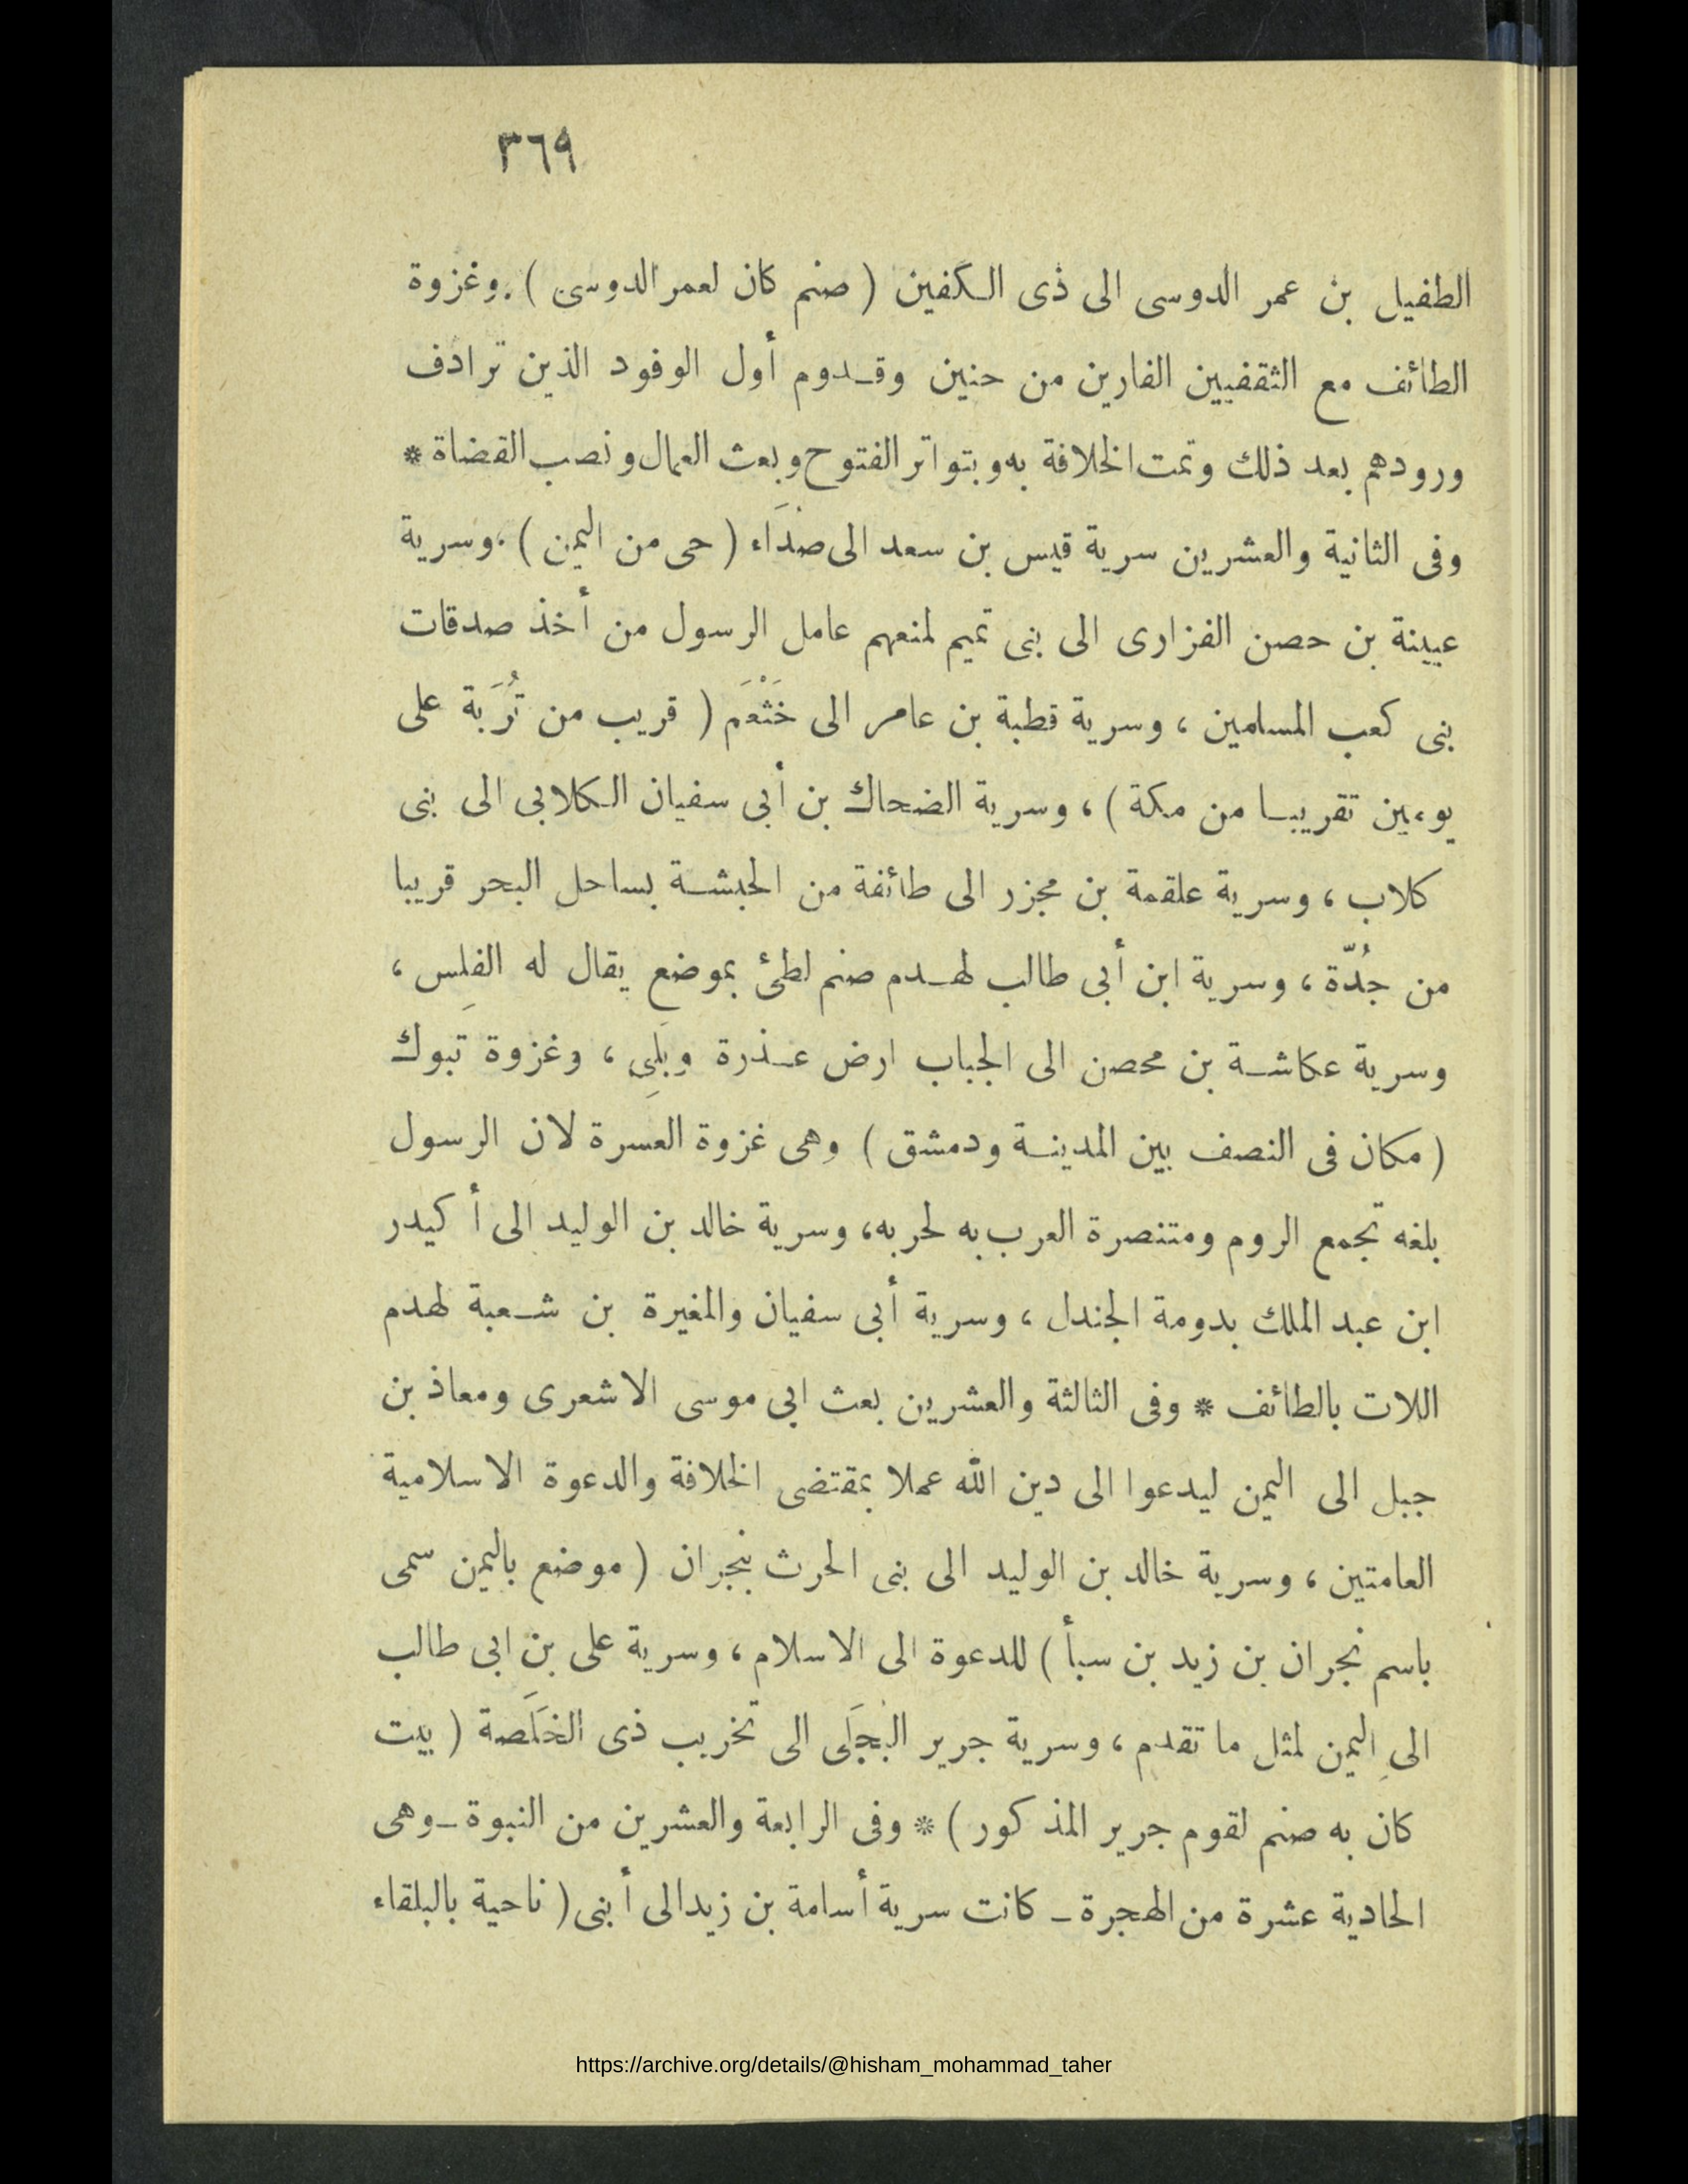 ٣٦٩
الطفيل بن عمر الدوسى الى ذى الكفين ( صنم كان لعمر الدوسى ) . وغزوة
الطائف مع الثقفيين الفارين من حنين وقدوم أول الوفود الذين ترادف
ورودهم بعد ذلك وتمت الخلافة به وبتواتر الفتوح وبعث العمال ونصب القضاة *
وفى الثانية والعشرين سرية قيس بن سعد الى صُدَاء ( حى من اليمن ) ، وسرية
عيينة بن حصن الفزارى الى بنى تميم لمنعهم عامل الرسول من أخذ صدقات
بنى كعب المسلمين ، وسرية قطبة بن عامر الى خَثْعَم ( قريب من تُرَبة على
يومين تقريبا من مكة ) ، وسرية الضحاك بن أبى سفيان الكلابى الى بنى
كلاب ، وسرية علقمة بن مجزر الى طائفة من الحبشة بساحل البحر قريبا
من جُدّة ، وسرية ابن أبى طالب لهدم صنم لطئ بموضع يقال له الفلِس ،
وسرية عكاشة بن محصن الى الجباب ارض عذرة وبَلِى ، وغزوة تبوك
( مكان فى النصف بين المدينة ودمشق ) وهى غزوة العسرة لان الرسول
بلغه تجمع الروم ومتنصرة العرب به لحربه ، وسرية خالد بن الوليد الى أكيدر
ابن عبد الملك بدومة الجندل ، وسرية أبى سفيان والمغيرة بن شعبة لهدم
اللات بالطائف * وفى الثالثة والعشرين بعث ابى موسى الاشعرى ومعاذ بن
جبل الى اليمن ليدعوا الى دين الله عملا بمقتضى الخلافة والدعوة الاسلامية
العامتين ، وسرية خالد بن الوليد الى بنى الحرث بنجران ( موضع باليمن سمى
باسم نجران بن زيد بن سبأ ) للدعوة الى الاسلام ، وسرية على بن ابى طالب
الى اليمن لمثل ما تقدم ، وسرية جرير البُجَلَى الى تخريب ذى الخلَصة ( بيت
كان به صنم لقوم جرير المذكور ) * وفى الرابعة والعشرين من النبوة ـ وهى
الحادية عشرة من الهجرة ـ كانت سرية أسامة بن زيد الى أبنى ( ناحية بالبلقاء
https://archive.org/details/@hisham_mohammad_taher